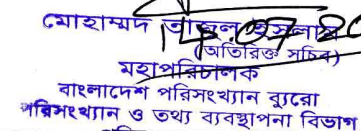 মোহাম্মদ তাজুল ইসলাম
14.07.20
(অতিরিক্ত সচিব)
মহাপরিচালক
বাংলাদেশ পরিসংখ্যান ব্যুরো
পরিসংখ্যান ও তথ্য ব্যবস্থাপনা বিভাগ